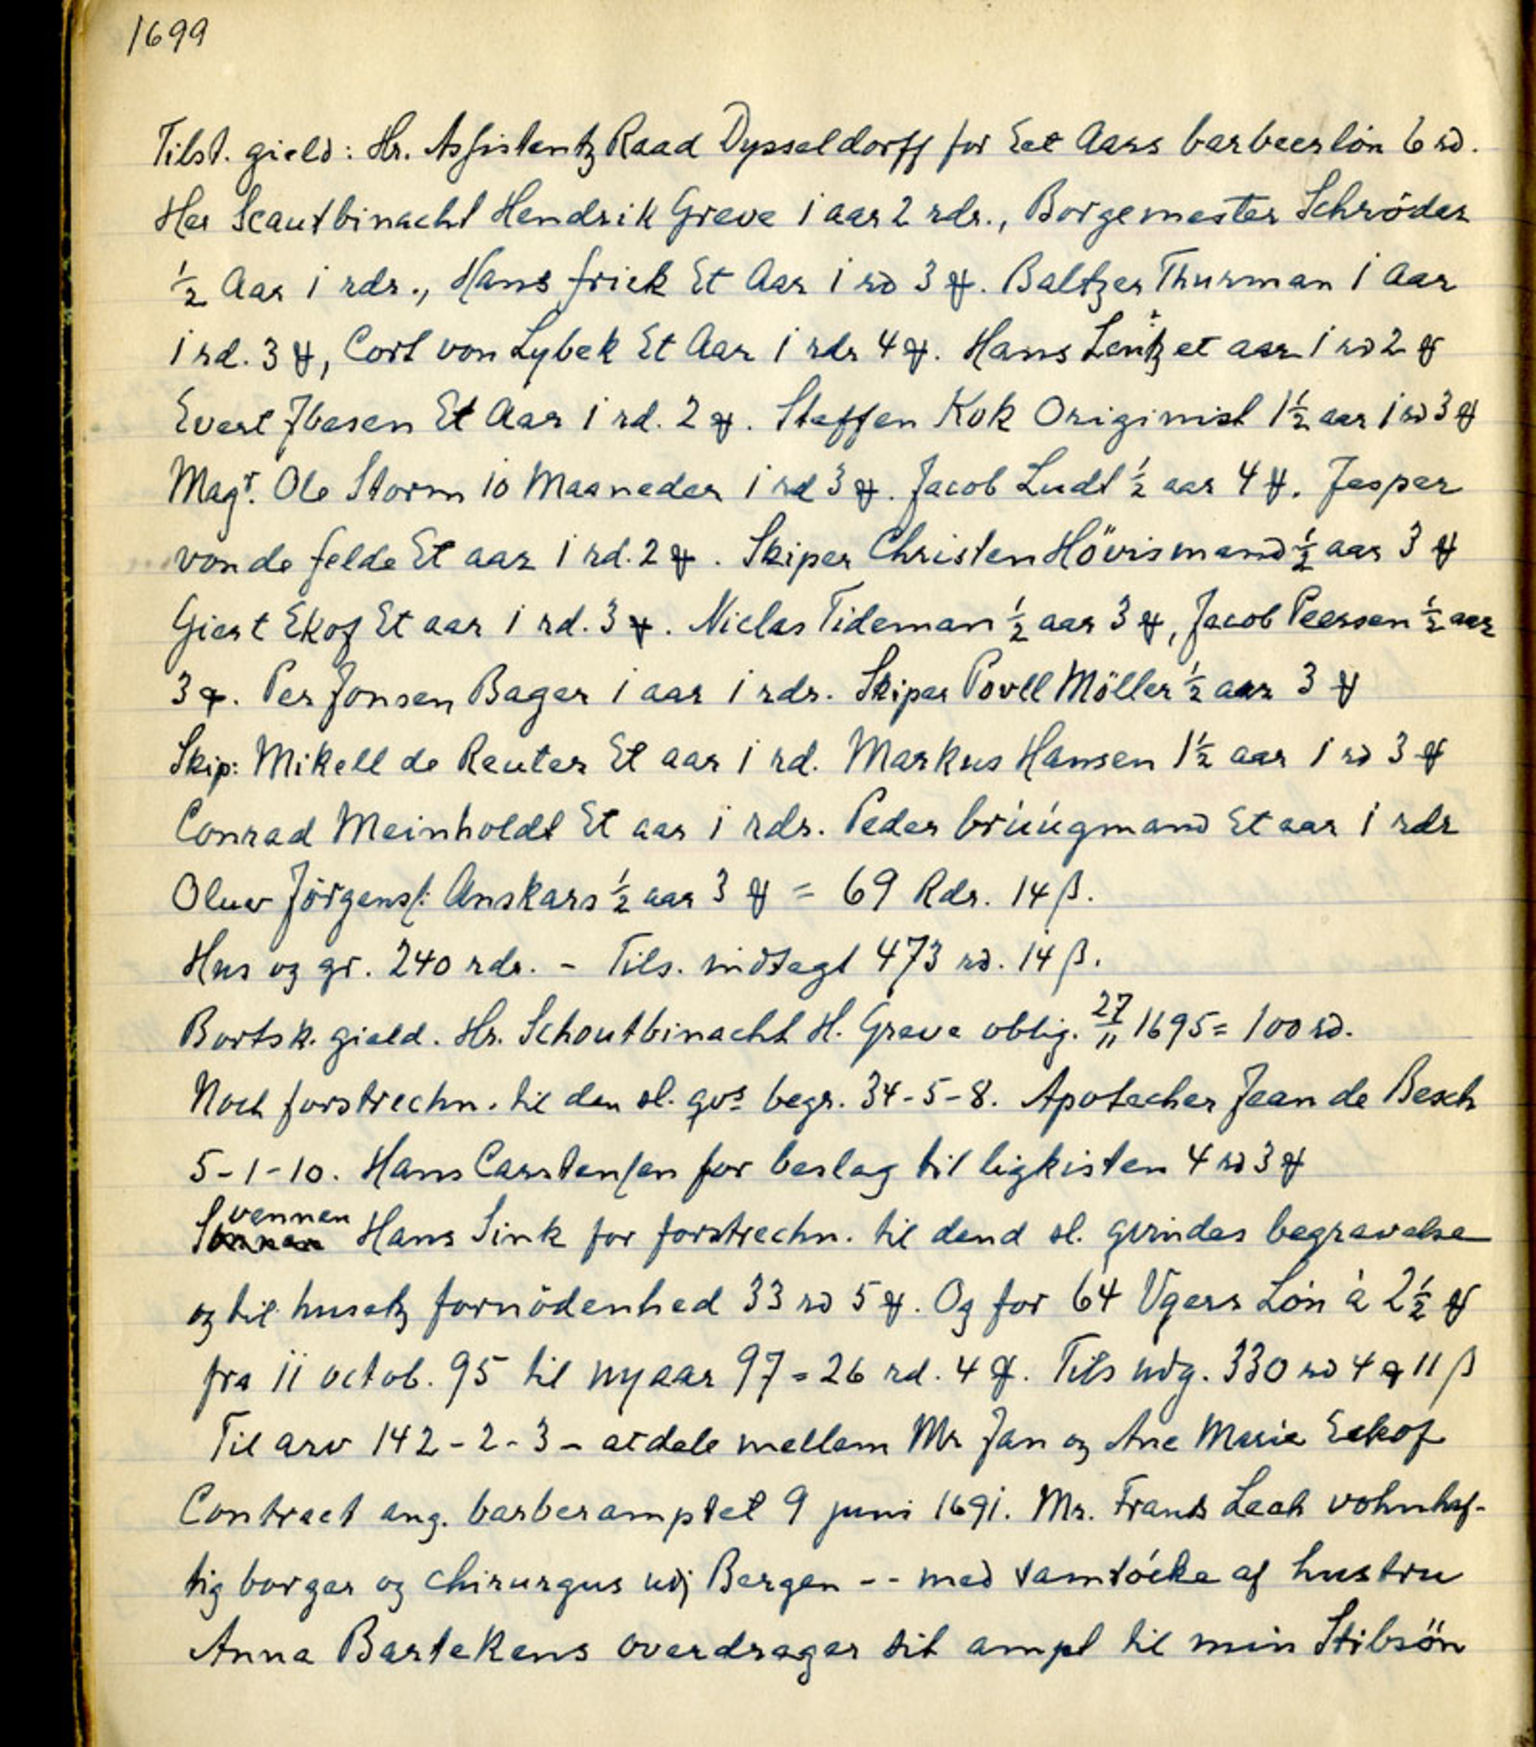 1699
Tilst. gield: Hr. Assistentz Raad Dysseldorff for Eet Aars barbeerlön 6 rd.
Her Scautbinacht Hendrik Greve i aar 2 rdr., Borgemester Schröder
½ Aar i rdr., Hans frick Et Aar i rd 3 ꝶ. Baltzer Thurman i Aar
i rd. 3 ꝶ, Cort von Lybek Et Aar i rdr 4 ꝶ. Hans Lentz et aar i rd 2 ꝶ
Evert Ibesen Et Aar i rd. 2 ꝶ. Steffen Kok Originist 1½ aar i rd 3 ꝶ
Magr. Ole Storm io Maaneder i rd 3 ꝶ. Jacob Ludt ½ aar 4 ꝶ. Jesper
von de felde Et aar i rd. 2 ꝶ. Skiper Christen Hövismand ½ aar 3 ꝶ
Giert Ekof Et aar i rd. 3 ꝶ. Niclas Tideman ½ aar 3 ꝶ, Jacob Peersen ½ aar
3 ꝶ. Per Jonsen Bager i aar i rdr. Skiper Povll Möller ½ aar 3 ꝶ
Skip: Mikell de Reuter Et aar i rd. Markus Hansen 1½ aar i rd 3 ꝶ
Conrad Meinholdt Et aar i rdr. Peder brúúgmand Et aar i rdr
Oluv Jörgens: Anskars ½ aar 3 ꝶ = 69 Rdr. 14 β.
Hus og gr. 240 rdr. - Tils. indtegt 473 rd. 14 β.
Bortsk. gield. Hr. Schoutbinacht H. Greve oblig. 27/11 1695 = 100 rd.
Noch forstrechn. til den sl. qvs begr. 34-5-8. Apotecher Jean de Besch
5-1-10. Hans Carstensen for beslag til ligkisten 4 rd 3 ꝶ
Svennen Hans Sink for forstrechn. til dend sl. qvindes begravelse
og til husetz fornödenhed 33 rd 5 ꝶ. Og for 64 Vgers Lön à 2½ ꝶ
fra ii octob. 95 til nyaar 97 = 26 rd. 4 ꝶ. Tils udg. 330 rd 4 ꝶ 11 β
Til arv 142-2-3 - at dele mellem Mr Jan og Ane Marie Eekof
Contract ang. barberamptet 9 juni 1691. Mr. Frants Lech vohnhaf-
tig borger og chirurgus udj Bergen -- med samtöcke af hustru
Anna Bartekens overdrager sit ampt til min Stibsön